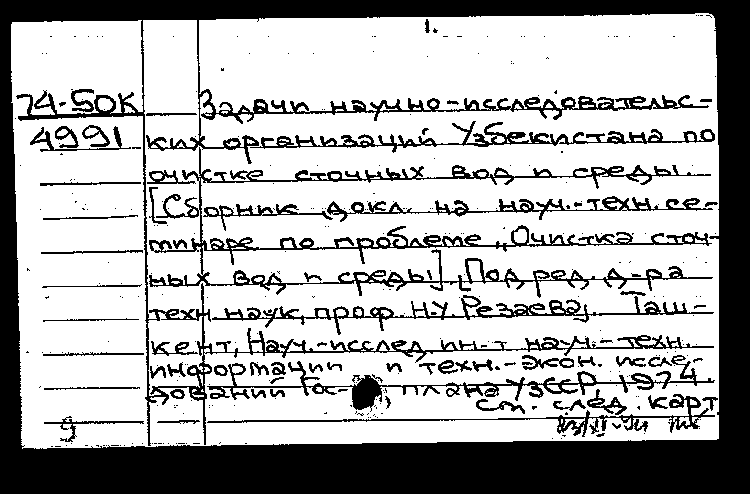 1.
74-50К Задачи научно-исследовательс-
4991 ких организаций Узбекистана по
очистке сточных вод и среды.
[Сборник докл. на науч.-техн. се-
минаре по проблеме „Очистка сточ-
ных вод и среды]. [Под ред. д-ра
техн. наук, проф. Н.У. Резаева]. Таш-
кент, Науч.-исслед. ин-т науч.-техн.
информации и техн.-экон. иссле-
дований Гос-плана УзССР, 1974.
см. след. карт
9